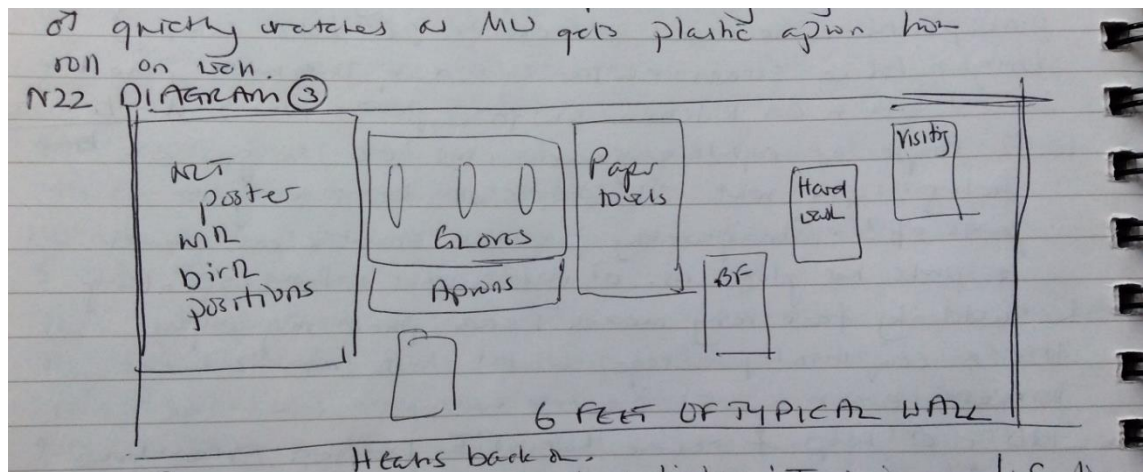 quickly watches as MW gets plastic apron from
roll on wall.
N22 DIAGRAM 3
NCT
poster
with
birth
positions
GLOVES
Aprons
Paper
towels
BF
Hand
wash
Visiting
6 FEET OF TYPICAL WALL
Hears back